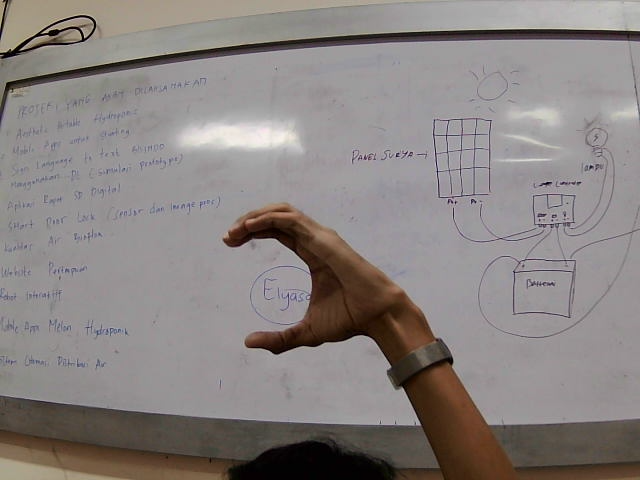 PROJEK YANG AKAN DILAKSANAKAN
Aesthetic Potable Hydroponic
Mobile Apps untuk Stunting
Sign Language to text BISINDO
menggunakan DL (simulasi prototype)
Aplikasi Rapor SD Digital
Smart Door Lock (Sensor dan image pros)
kualitas Air Bioflok
Website Pertanian
Robot Interaktif
Mobile Apps Melon Hydroponik
Sistem Otomasi Distribusi Air
Elyas
PANEL SURYA
P+ P-
LAMPU
Baterai